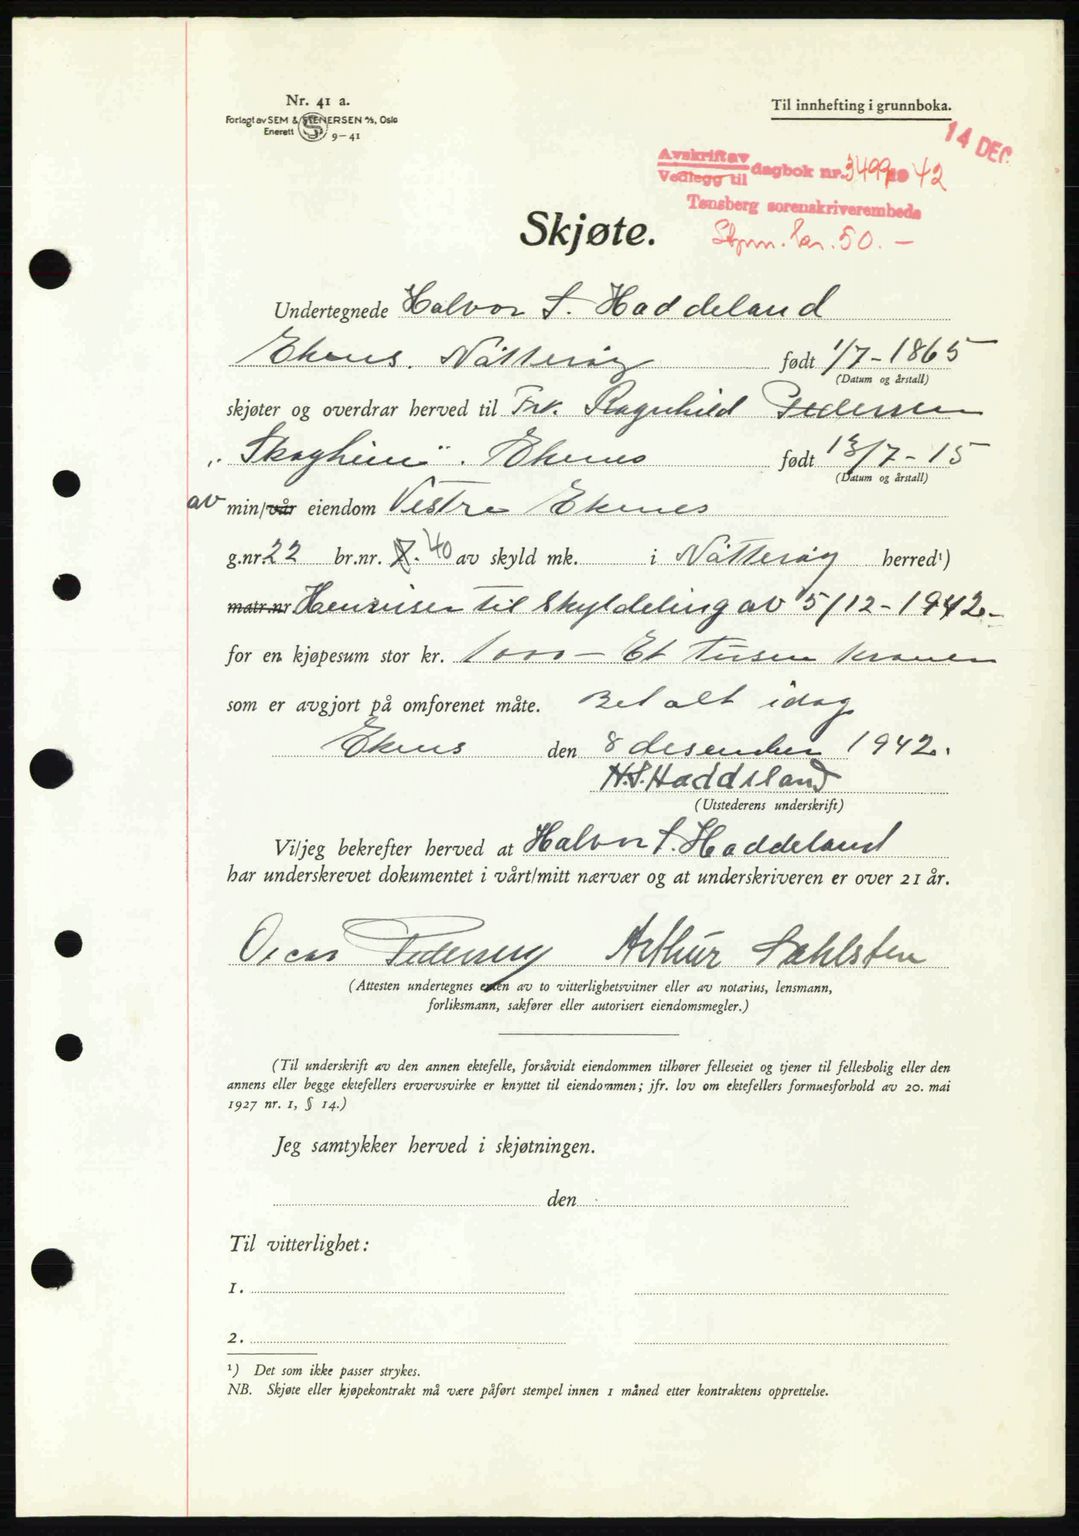 Nr. 41 a.
Forlagt av SEM & STENERSEN A/S, Oslo
Enerett 9-41
Til innhefting i grunnboka.
14 DEC
Avskrift av
Vedlegg til dagbok nr. 3499 19 42
Tønsberg sorenskriverembede
Stpm. kr. 50.-
Skjøte.
Undertegnede Halvor S. Haddeland
Ekenes. Nøtterøy født 1/7 - 1865
(Datum og årstall)
skjøter og overdrar herved til Frk. Ragnhild Pedersen
"Skogheim". Ekenes født 13/7 - 15
(Datum og årstall)
av min/vår eiendom Vestre Ekenes
g.nr. 22 br.nr. 7. 40 av skyld mk. i Nøtterøy herred¹)
matr.nr Henviser til Skyldeling av 5/12 - 1942.-
for en kjøpesum stor kr. 1000 - Et tusen kroner
som er avgjort på omforenet måte. Betalt idag
Ekenes den 8 desember 1942.
H.S. Haddeland
(Utstederens underskrift)
Vi/jeg bekrefter herved at Halvor S. Haddeland
har underskrevet dokumentet i vårt/mitt nærvær og at underskriveren er over 21 år.
Oscar Pedersen Arthur Dahlsten
(Attesten undertegnes enten av to vitterlighetsvitner eller av notarius, lensmann,
forliksmann, sakfører eller autorisert eiendomsmegler.)
(Til underskrift av den annen ektefelle, forsåvidt eiendommen tilhører felleseiet og tjener til fellesbolig eller den
annens eller begge ektefellers ervervsvirke er knyttet til eiendommen; jfr. lov om ektefellers formuesforhold av 20. mai
1927 nr. 1, § 14.)
Jeg samtykker herved i skjøtningen.
den
Til vitterlighet:
1.
2.
¹) Det som ikke passer strykes.
NB. Skjøte eller kjøpekontrakt må være påført stempel innen 1 måned etter kontraktens opprettelse.